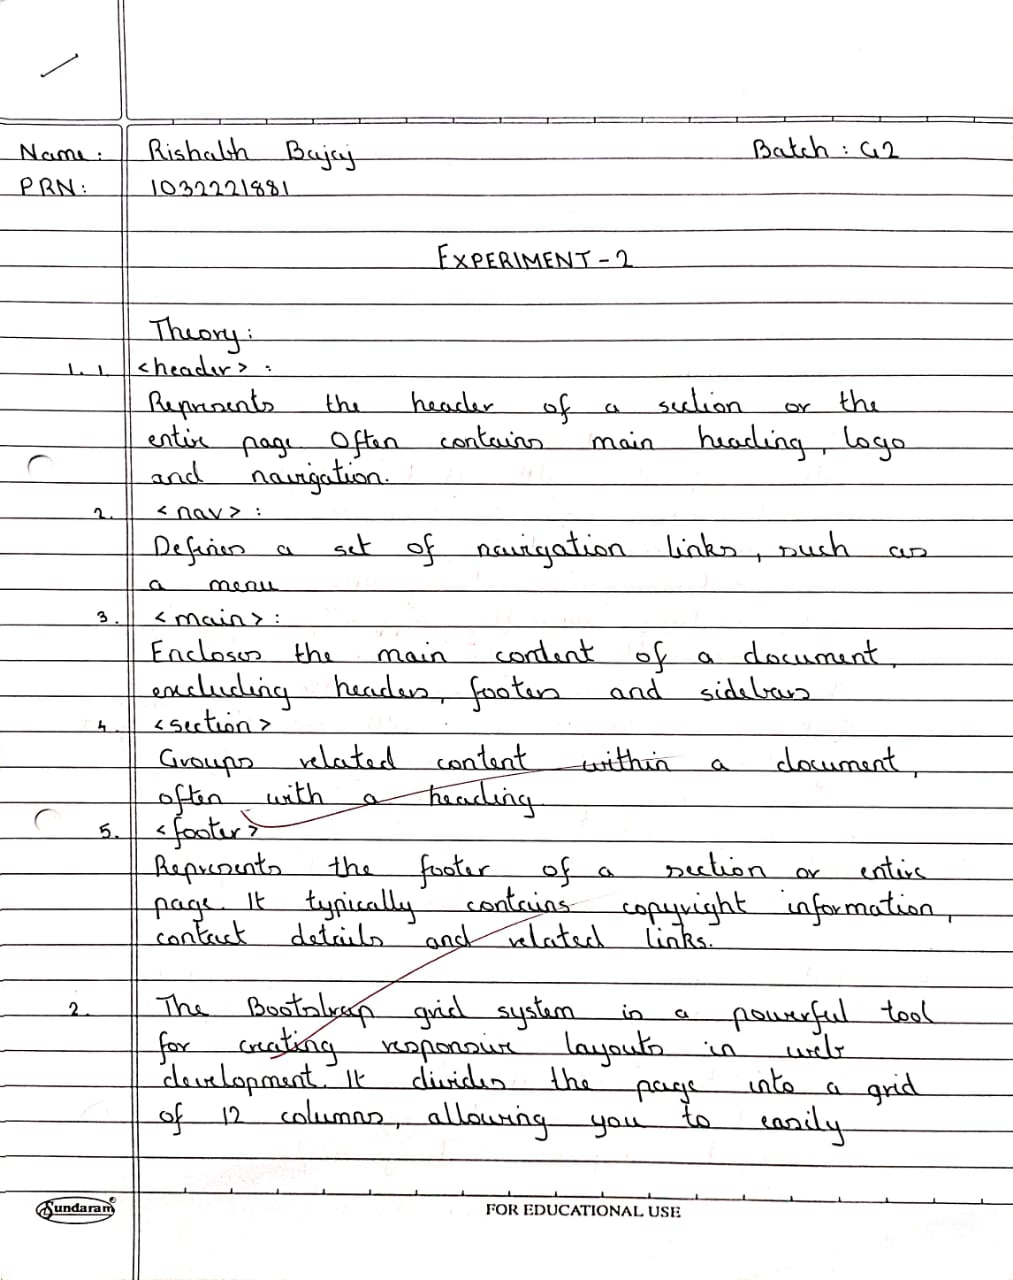 Name: Rishabh Bajaj Batch: G2
PRN: 1032221881
EXPERIMENT-2
Theory:
1. 1. <header> :
Represents the header of a section or the
entire page. Often contains main heading, logo
and navigation.
2. <nav> :
Defines a set of navigation links, such as
a menu
3. <main> :
Encloses the main content of a document,
excluding headers, footers and sidebars
4. <section>
Groups related content within a document,
often with a heading
5. <footer>
Represents the footer of a section or entire
page. It typically contains copyright information,
contact details and related links.
2. The Bootstrap grid system is a powerful tool
for creating responsive layouts in web
development. It divides the page into a grid
of 12 columns, allowing you to easily
Sundaram FOR EDUCATIONAL USE